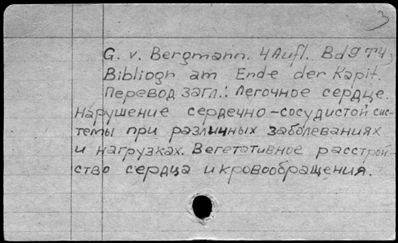 3
G. v. Bergmann. 4 Aufl. Bd 9 T4,
Bibliogr am Ende der Kapit.
Перевод загл.: Легочное сердце.
Нарушение сердечно-сосудистой сис-
темы при различных заболеваниях
и нагрузках. Вегетативное расстрой-
ство сердца и кровообращения.